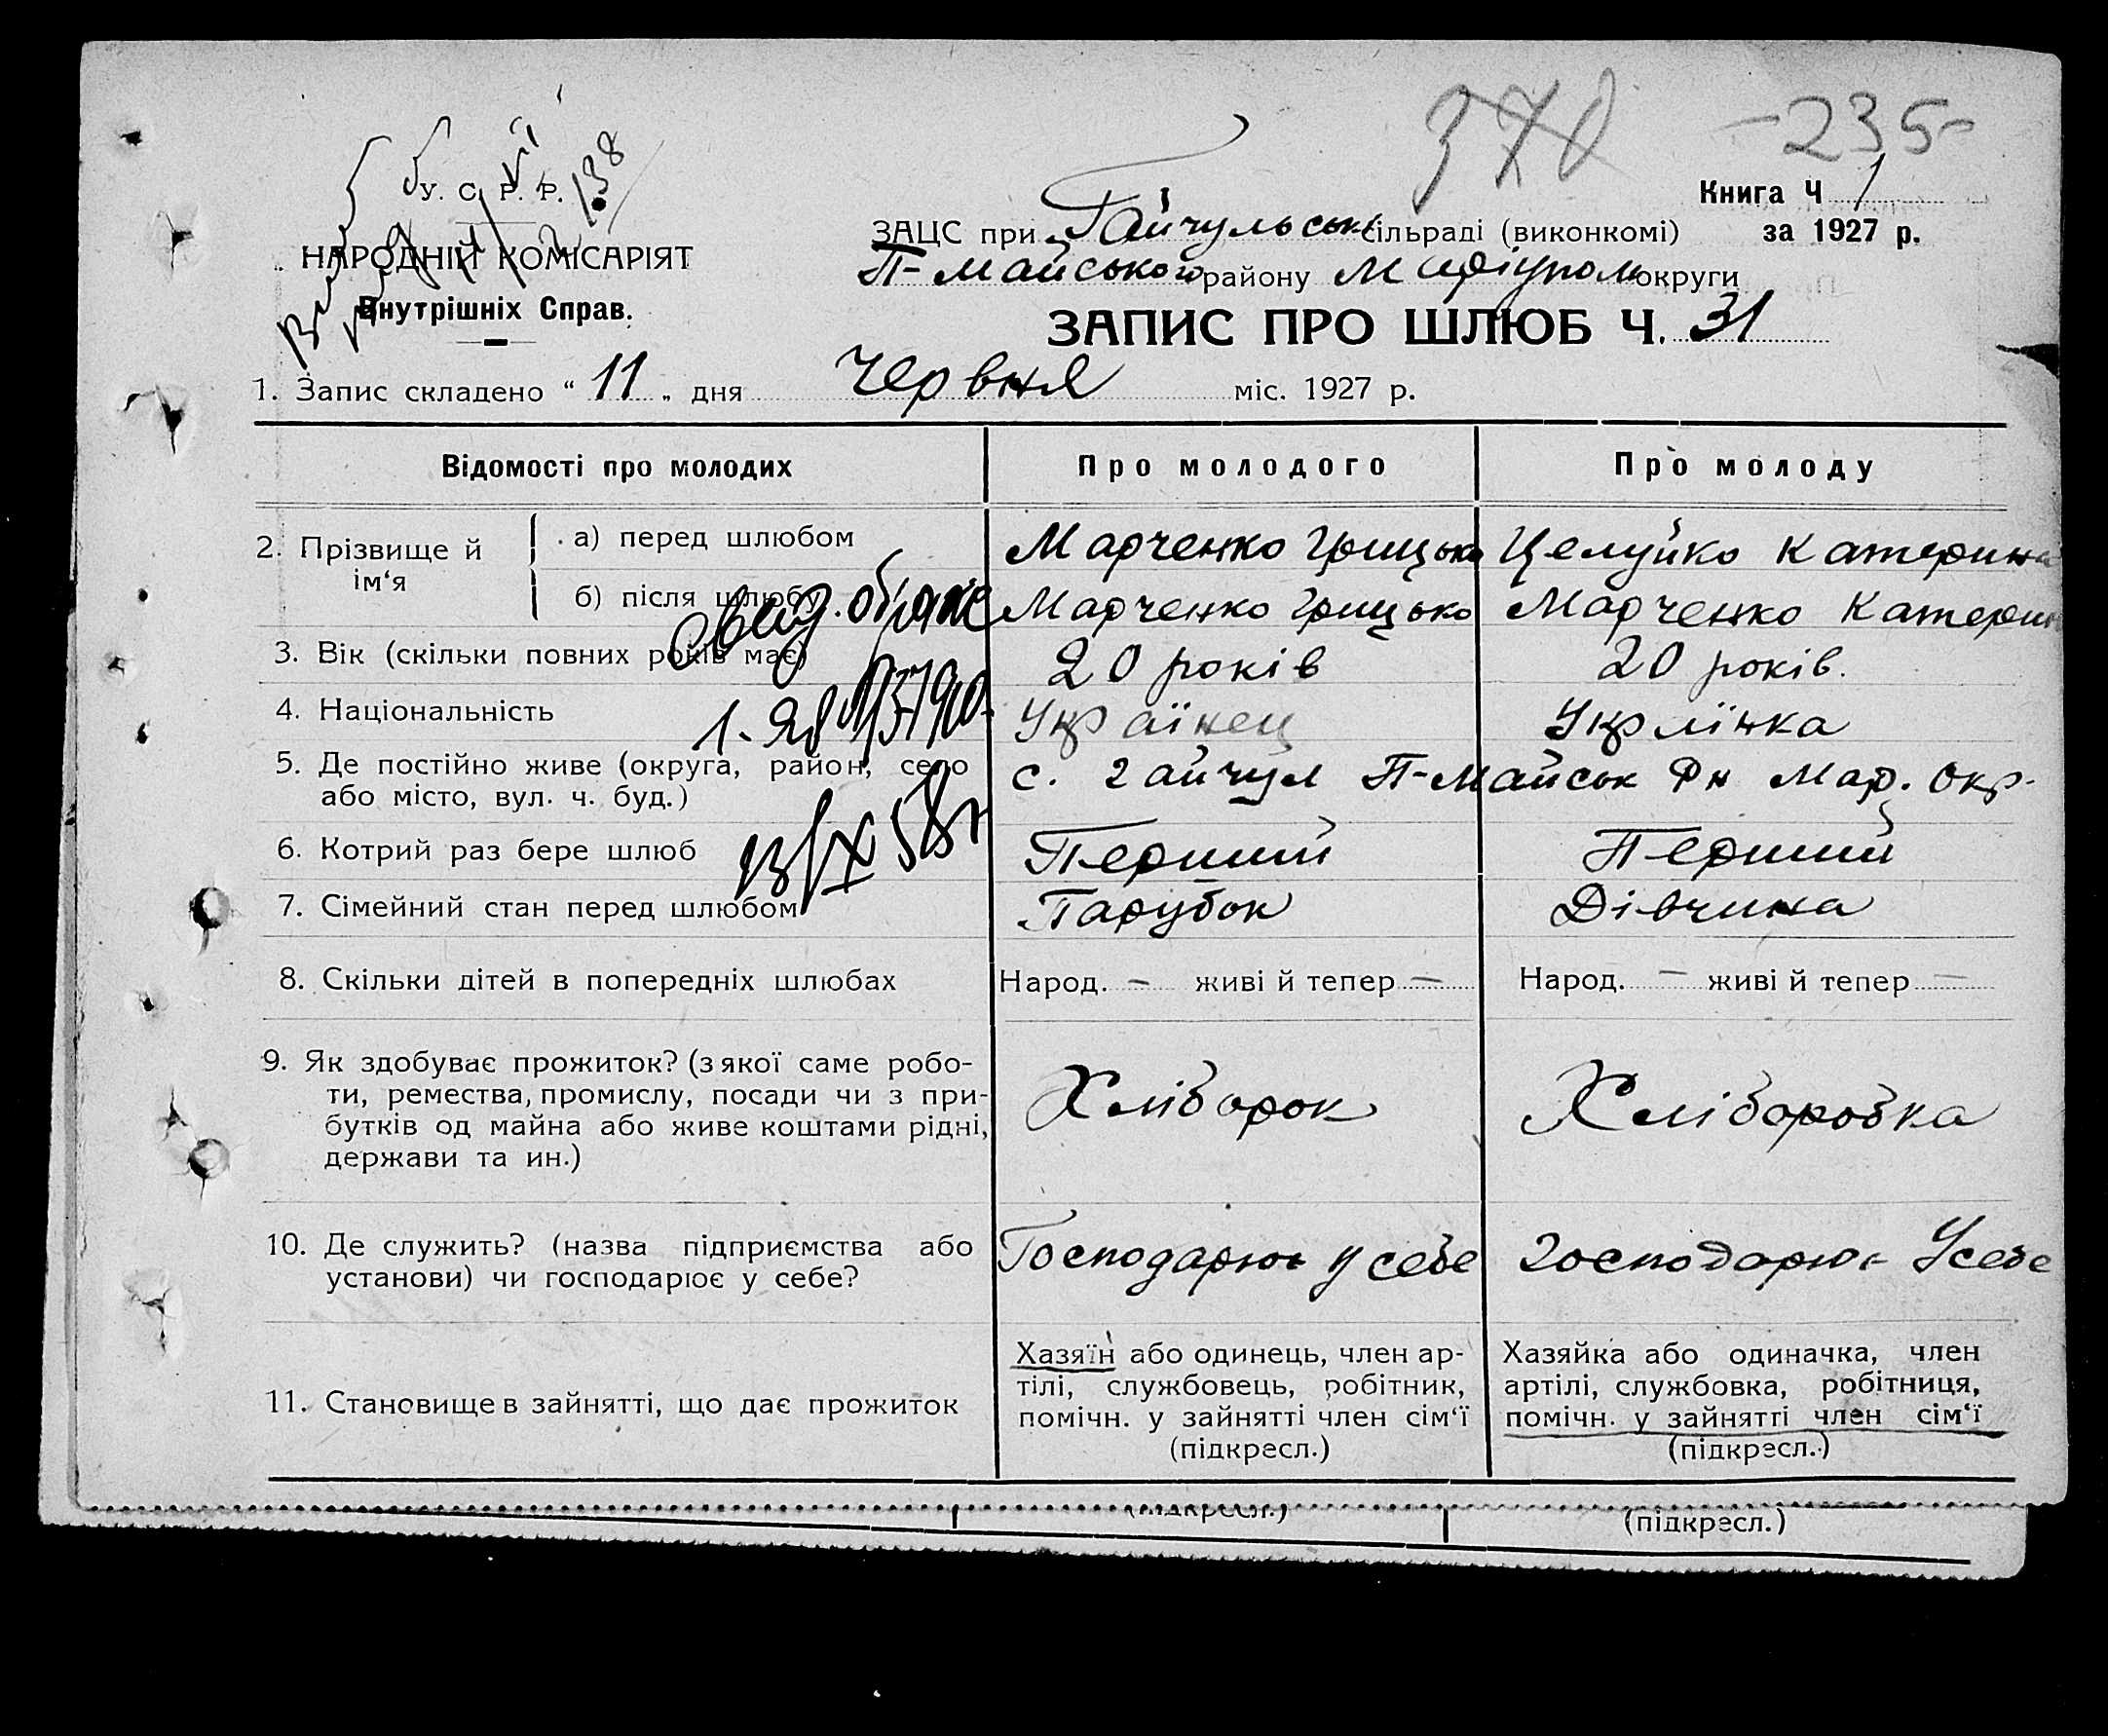 370 -235-
У. С. Р. Р.
НАРОДНІЙ КОМІСАРІЯТ
Внутрішніх Справ.
Книга Ч 1
ЗАЦС при Гайчульськ сільраді (виконкомі) за 1927 р.
П-Майського району Маріупол округи
ЗАПИС ПРО ШЛЮБ Ч. 31
1. Запис складено “ 11 „ дня червня міс. 1927 р.
Відомості про молодих Про молодого Про молоду
2. Прізвище й ім‘я
а) перед шлюбом Марченко Грицько Целуйко Катерина
б) після шлюбу Марченко Грицько Марченко Катерин
3. Вік (скільки повних років має) 20 років 20 років.
4. Національність Українец Укрлінка
5. Де постійно живе (округа, район, село
або місто, вул. ч. буд.) с. Гайчул П-Майськ Рн Мар. Окр.
6. Котрий раз бере шлюб Перший Перший
7. Сімейний стан перед шлюбом Парубок Дівчина
8. Скільки дітей в попередніх шлюбах Народ. – живі й тепер – Народ. – живі й тепер –
9. Як здобуває прожиток? (з якої саме робо-
ти, ремества, промислу, посади чи з при-
бутків од майна або живе коштами рідні,
держави та ин.)
Хліборок Хліборобка
10. Де служить? (назва підприємства або
установи) чи господарює у себе?
Господарює у себе Господарює Усебе
11. Становище в зайнятті, що дає прожиток
Хазяїн або одинець, член ар-
тілі, службовець, робітник,
помічн. у зайнятті член сім‘ї
(підкресл.)
Хазяйка або одиначка, член
артілі, службовка, робітниця,
помічн. у зайнятті член сім‘ї
(підкресл.)
(підкресл.) (підкресл.)